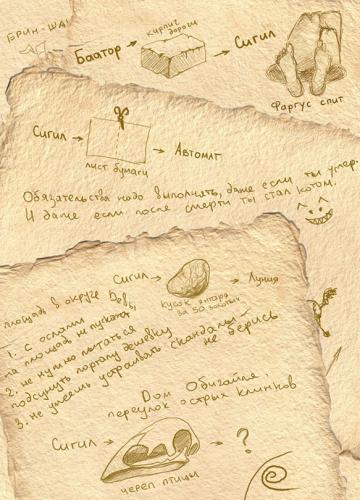 БРИН-ША
Баатор → кирпич дороги → Сигил
Фаргус спит
Сигил → лист бумаги → Автомат
Обязательства надо выполнять, даже если ты умер.
И даже если после смерти ты стал котом.
Сигил → кусок янтаря за 50 золотых → Луния
площадь в округе
1. с ослами
на площадь не пускают
2. не нужно пытаться
подсунуть порталу дешевку
3. не умеешь устраивать скандалы
не берись
Дом Обигайля,
переулок острых клинков
Сигил → череп птицы → ?